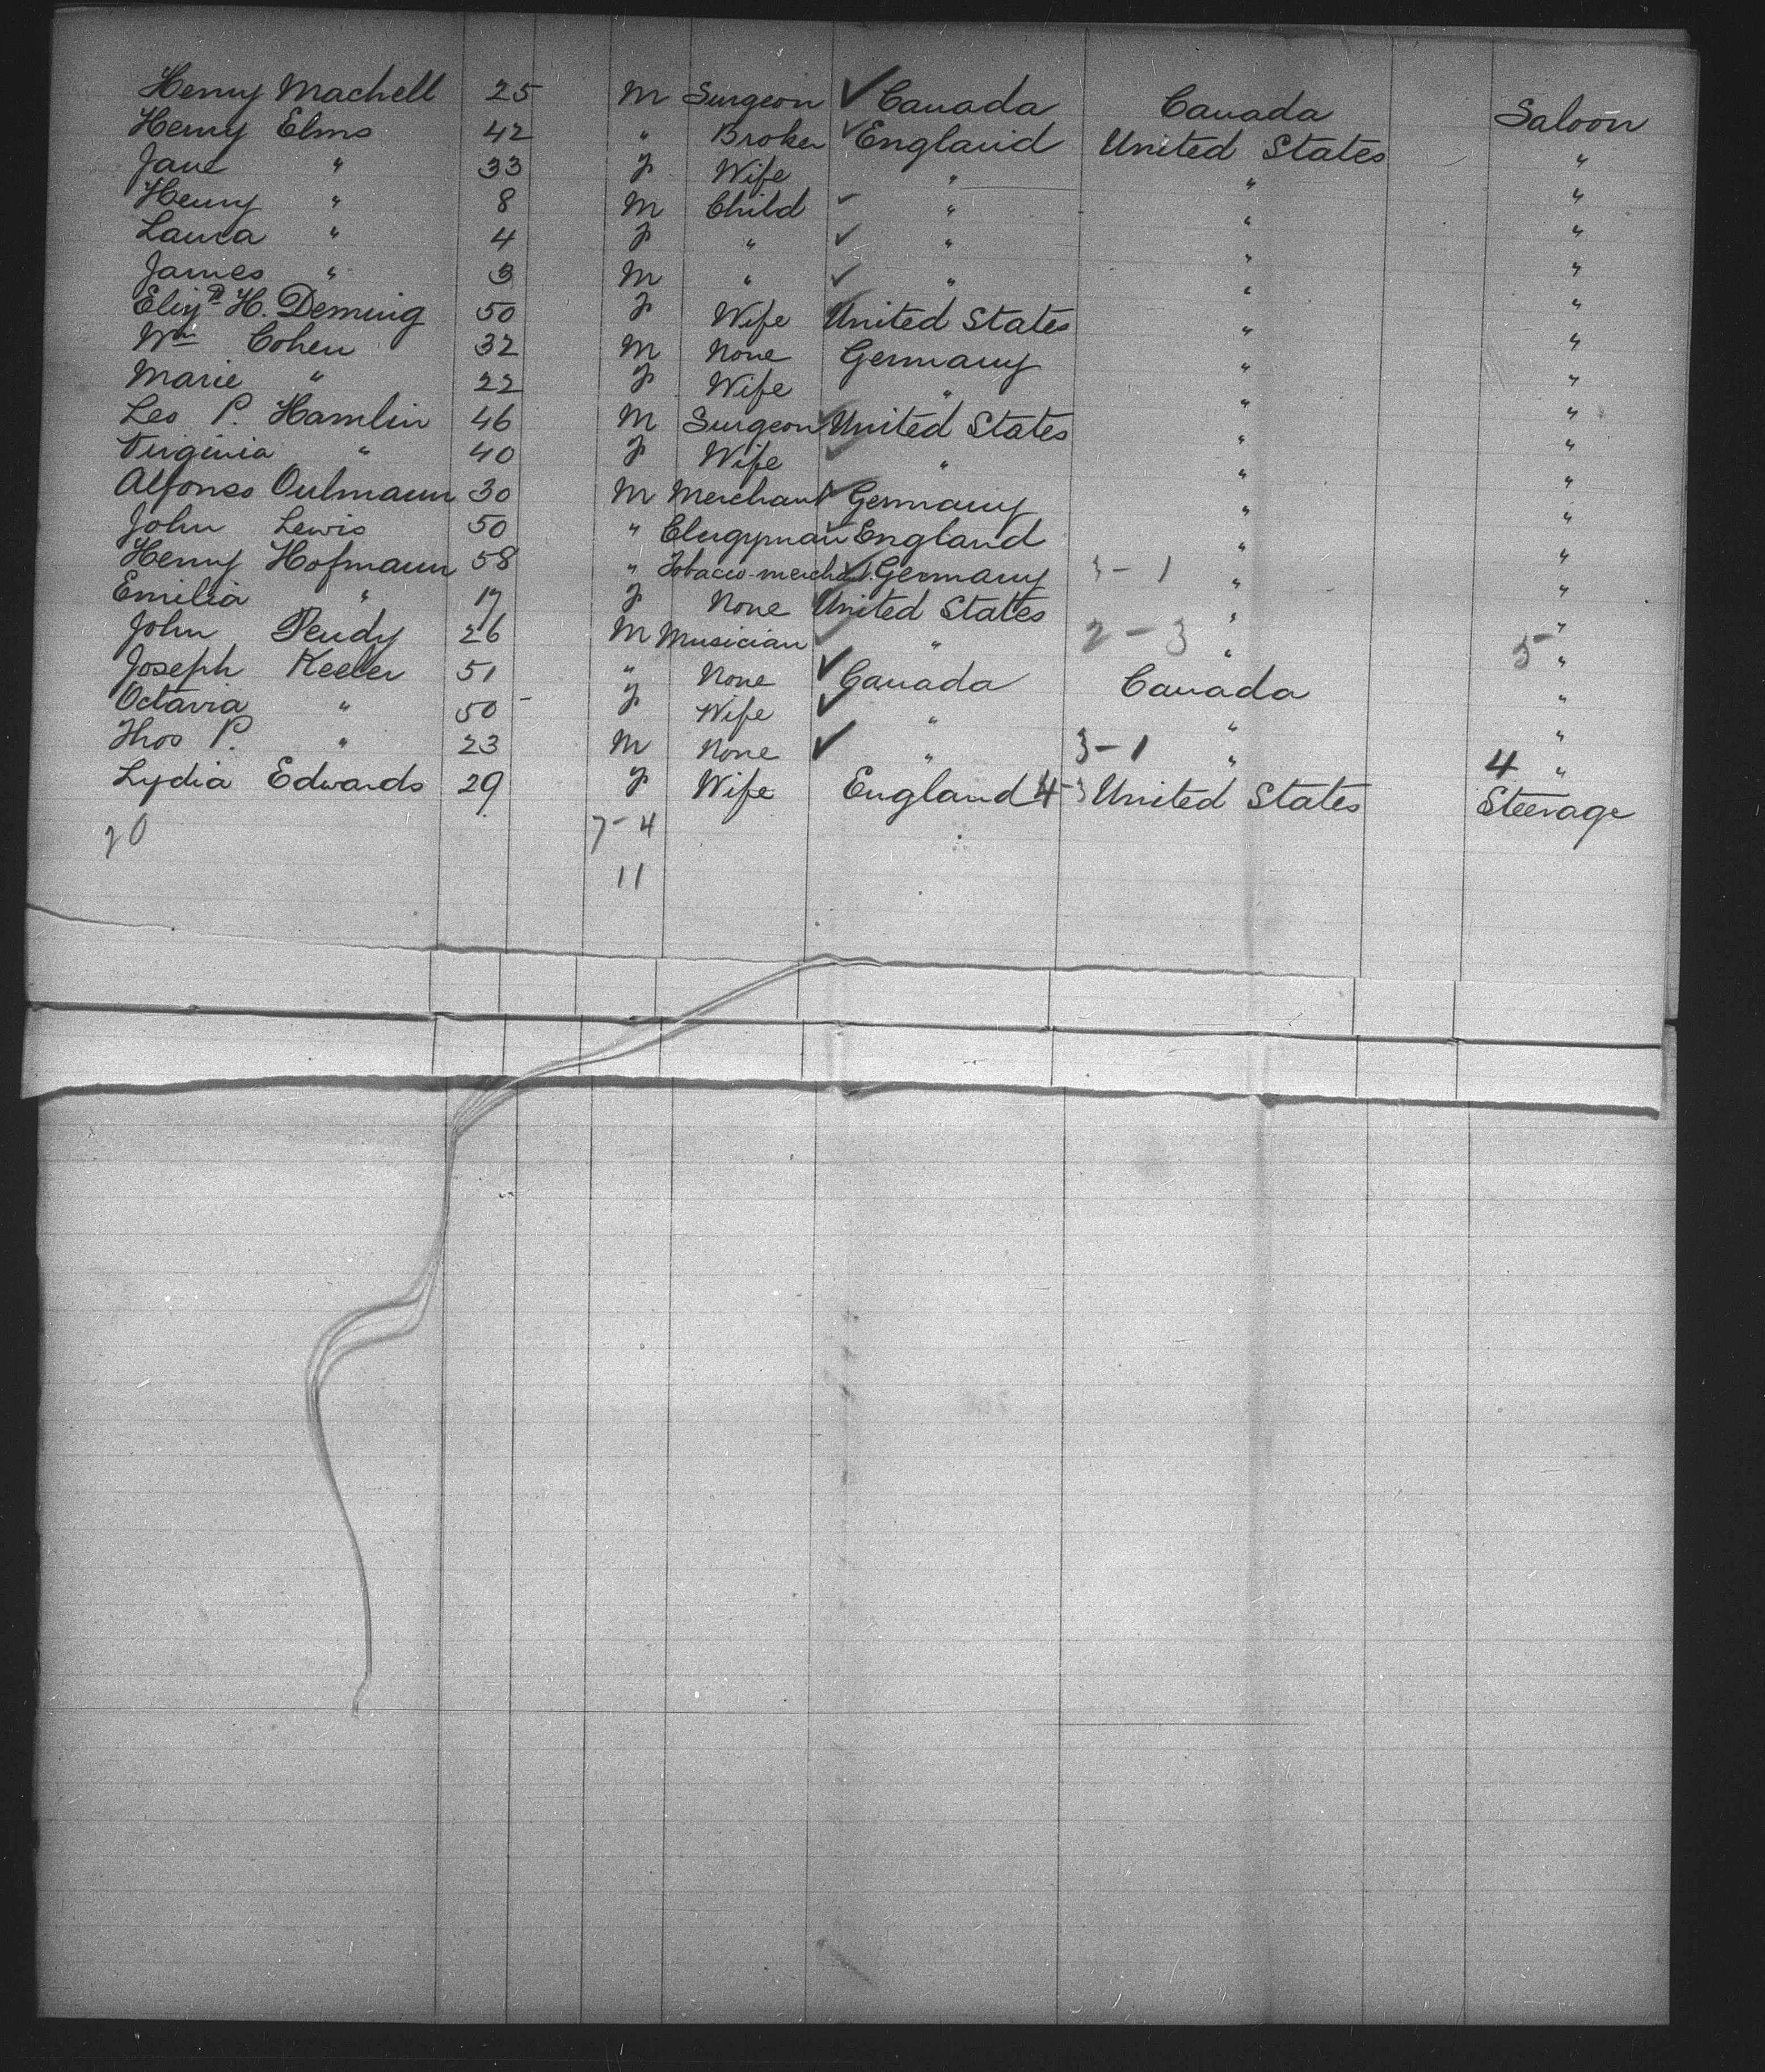 Henry Machell 25 M Surgeon ✓ Canada Canada Saloon
Henry Elms 42 " Broker ✓ England United States "
Jane " 33 F Wife " " "
Henry " 8 M Child ✓ " " "
Laura " 4 F " ✓ " " "
James " 3 M " ✓ " " "
Eliz H. Deming 50 F Wife United States " "
Wm Cohen 32 M None Germany " "
Marie " 22 F Wife " " "
Leo P. Hamlin 46 M Surgeon ✓ United States " "
Virginia " 40 F Wife ✓ " " "
Alfonso Oulmann 30 M Merchant ✓ Germany " "
John Lewis 50 " Clergyman ✓ England " "
Henry Hofmann 58 " Tobacco-merchant ✓ Germany 3-1 " "
Emilia " 17 F None ✓ United States " "
John Pendy 26 M Musician ✓ " 2-3 " 5 "
Joseph Keeler 51 " None ✓ Canada Canada "
Octavia " 50 F Wife ✓ " " "
Thos P. " 23 M None ✓ " 3-1 " 4 "
Lydia Edwards 29 F Wife England 4-3 United States Steerage
20 7-4
11